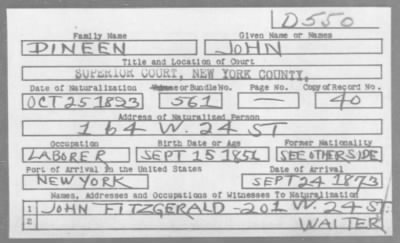 D550
Family Name Given Name or Names
DINEEN JOHN
Title and Location of Court
SUPERIOR COURT, NEW YORK COUNTY.
Date of Naturalization Volume or Bundle No. Page No. Copy of Record No.
OCT 25 1893 561 — 40
Address of Naturalized Person
164 W. 24 ST
Occupation Birth Date or Age Former Nationality
LABORER SEPT 15 1856 SEE OTHERSIDE
Port of Arrival in the United States Date of Arrival
NEW YORK SEPT 24 1873
Names, Addresses and Occupations of Witnesses To Naturalization
1 JOHN FITZGERALD - 201 W. 24 ST.
2 WAITER